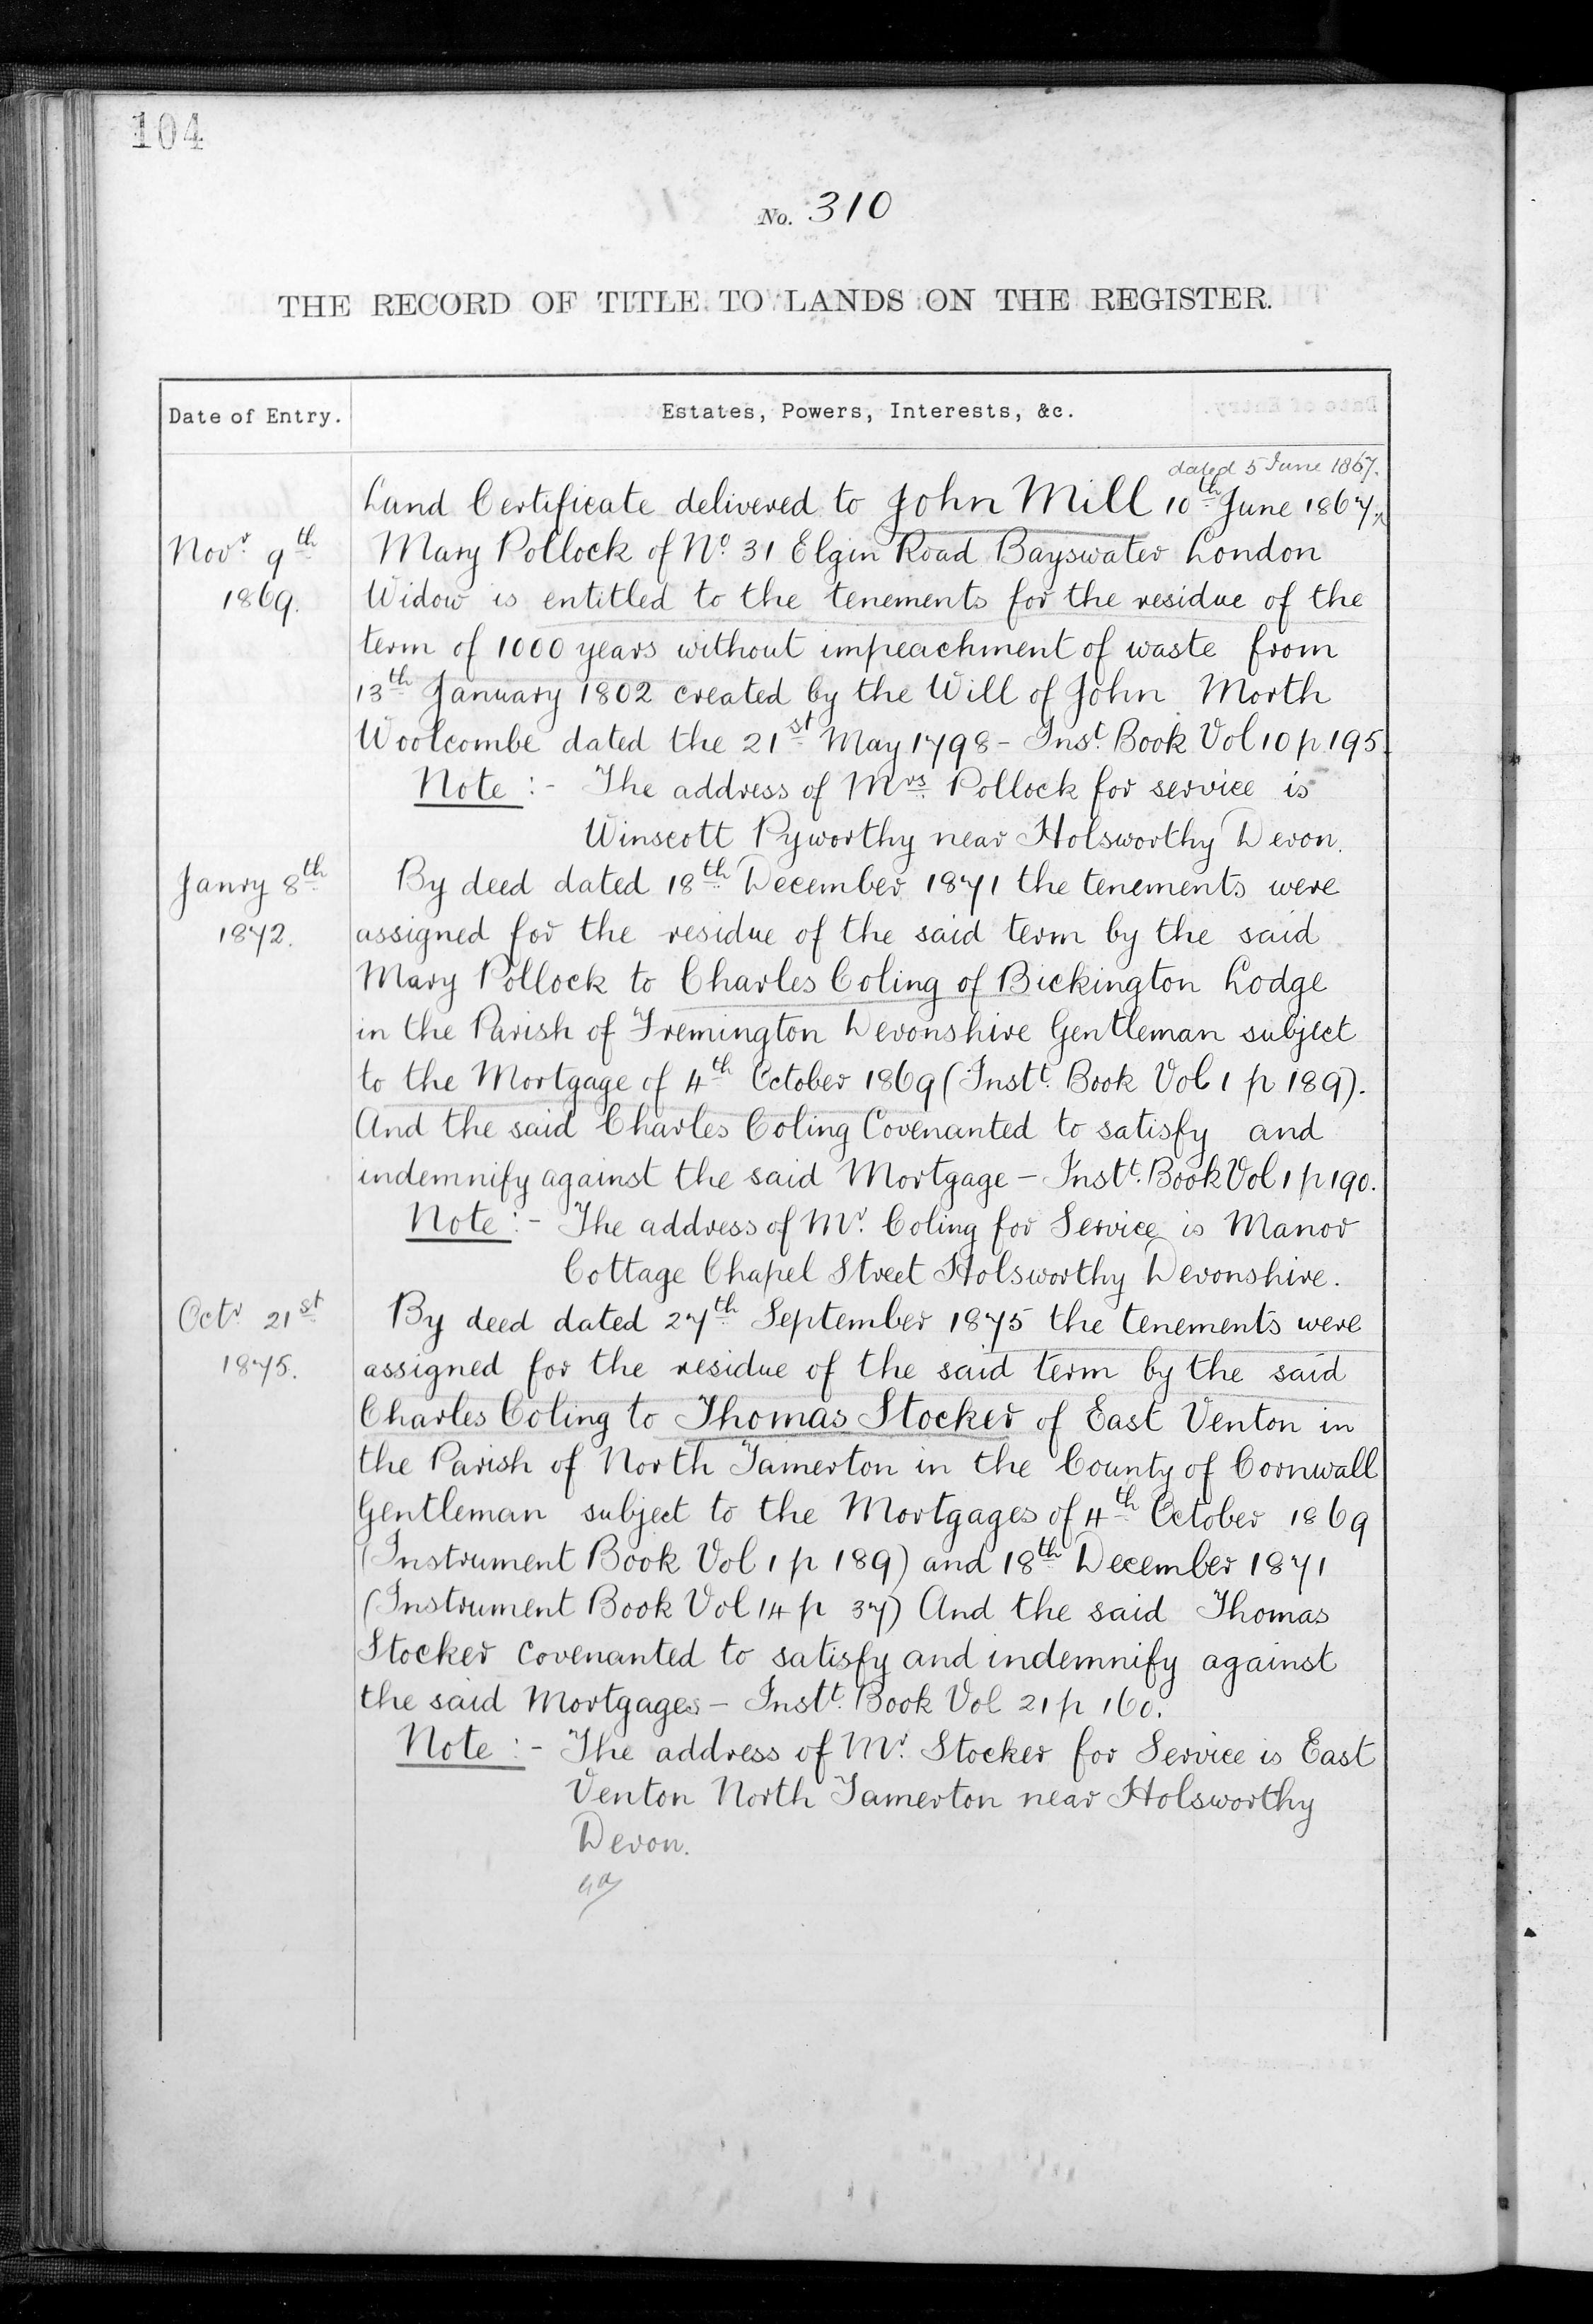 104
No. 310
THE RECORD OF TITLE TO LANDS ON THE REGISTER.
Date of Entry.
Estates, Powers, Interests, &c.
dated 5 June 1867.
Land Certificate delivered to John Mill 10th June 1867
Novr 9th
1869.
Mary Pollock of No. 31 Elgin Road Bayswater London
Widow is entitled to the tenements for the residue of the
term of 1000 years without impeachment of waste from
13th January 1802 created by the Will of John Morth
Woolcombe dated the 21st May 1798 - Inst. Book Vol 10 p 195.
Note :- The address of Mrs Pollock for service is
Winscott Pyworthy near Holsworthy Devon.
Janry 8th
1872.
By deed dated 18th December 1871 the tenements were
assigned for the residue of the said term by the said
Mary Pollock to Charles Coling of Bickington Lodge
in the Parish of Fremington Devonshire Gentleman subject
to the Mortgage of 4th October 1869 (Instt. Book Vol 1 p 189).
And the said Charles Coling Covenanted to satisfy and
indemnify against the said Mortgage - Instt. Book Vol 1 p 190.
Note :- The address of Mr. Coling for Service is Manor
Cottage Chapel Street Holsworthy Devonshire.
Octr 21st
1875.
By deed dated 27th September 1875 the tenements were
assigned for the residue of the said term by the said
Charles Coling to Thomas Stocker of East Venton in
the Parish of North Tamerton in the County of Cornwall
Gentleman subject to the Mortgages of 4th October 1869
(Instrument Book Vol 1 p 189) and 18th December 1871
(Instrument Book Vol 14 p 37) And the said Thomas
Stocker covenanted to satisfy and indemnify against
the said Mortgages - Instt. Book Vol 21 p 160.
Note :- The address of Mr. Stocker for Service is East
Venton North Tamerton near Holsworthy
Devon.